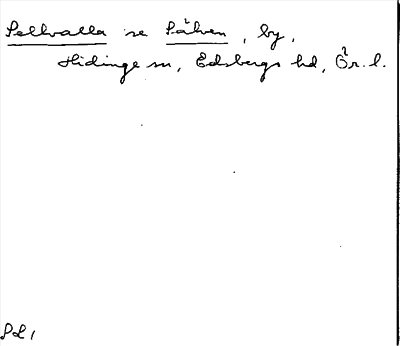 Sellvalla se Sälven, by,
Hidinge sn, Edsbergs hd, Ör. l.